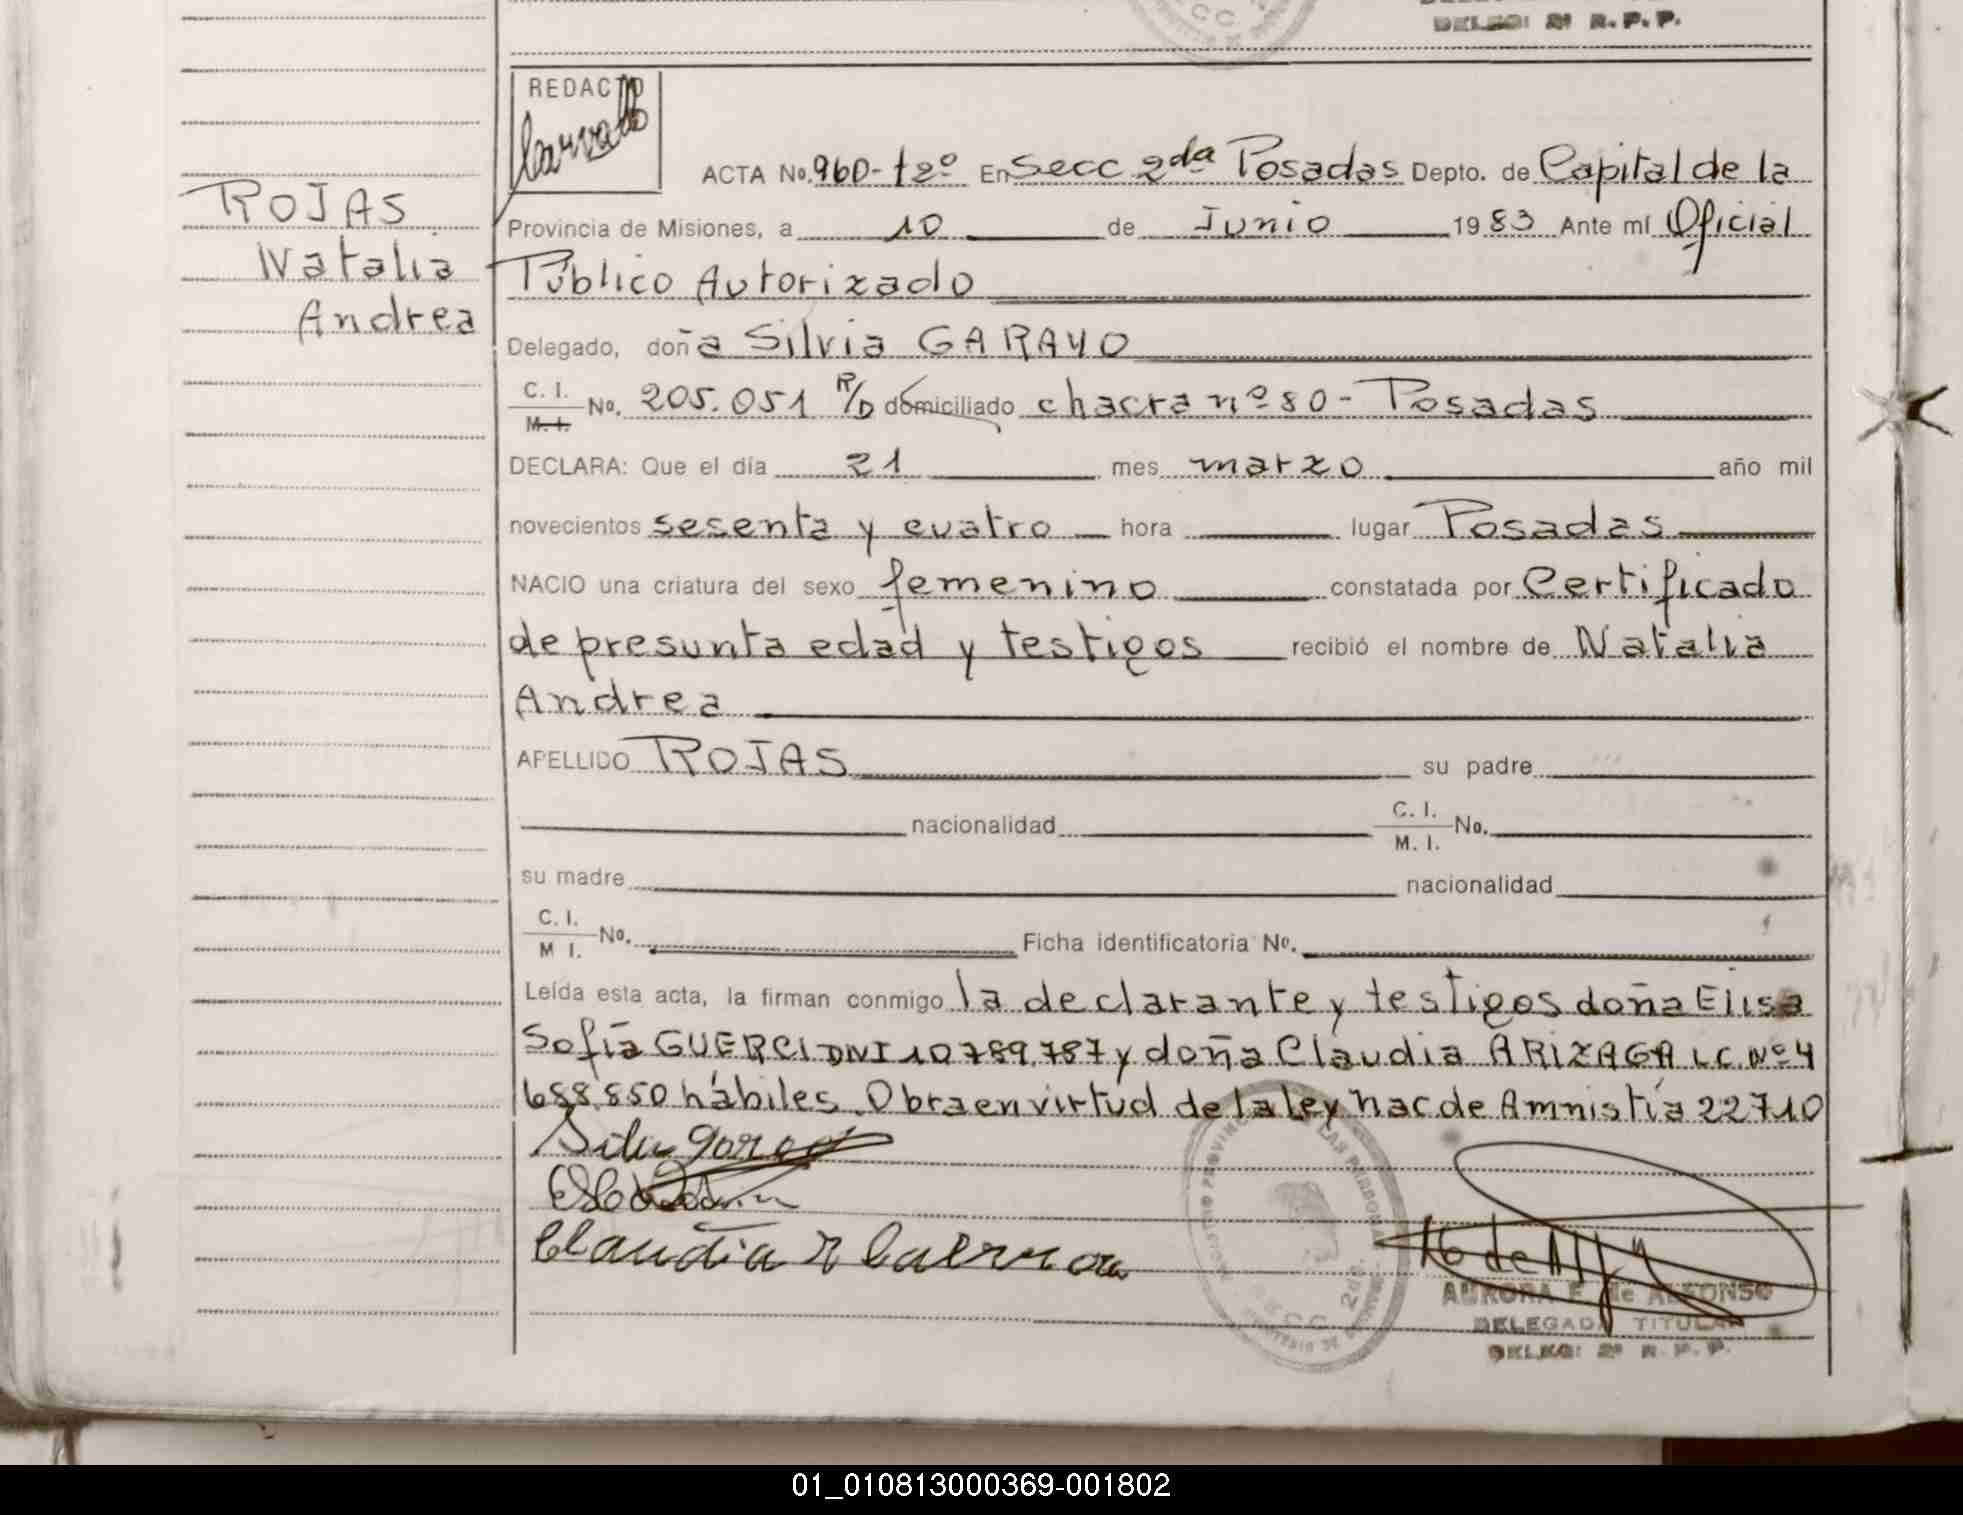 DELEG: 2ª R. P. P.
REDACTO
Carvallo
ROJAS
Natalia
Andrea
ACTA No. 960- tº2º En Secc 2da Posadas Depto. de Capital de la
Provincia de Misiones, a 10 de Junio 1983 Ante mí Oficial
Público Autorizado
Delegado, doña Silvia GARAYO
C. I. M. I. No. 205.051 R/D domiciliado chacra nº 80 - Posadas
DECLARA: Que el día 21 mes marzo año mil
novecientos sesenta y cuatro hora lugar Posadas
NACIO una criatura del sexo femenino constatada por Certificado
de presunta edad y testigos recibió el nombre de Natalia
Andrea
APELLIDO ROJAS su padre
nacionalidad C. I. M. I. No.
su madre nacionalidad
C. I. M I. No. Ficha identificatoria No.
Leída esta acta, la firman conmigo la declarante y testigos doña Elisa
Sofía GUERCI DNI 10789.787 y doña Claudia ARIZAGA LC. Nº 4
688.850 hábiles. Obra en virtud de la ley nac de Amnistía 22710
AURORA F. de ALFONSO
DELEGADA TITULAR
DELEG: 2ª R. P. P.
01_010813000369-001802